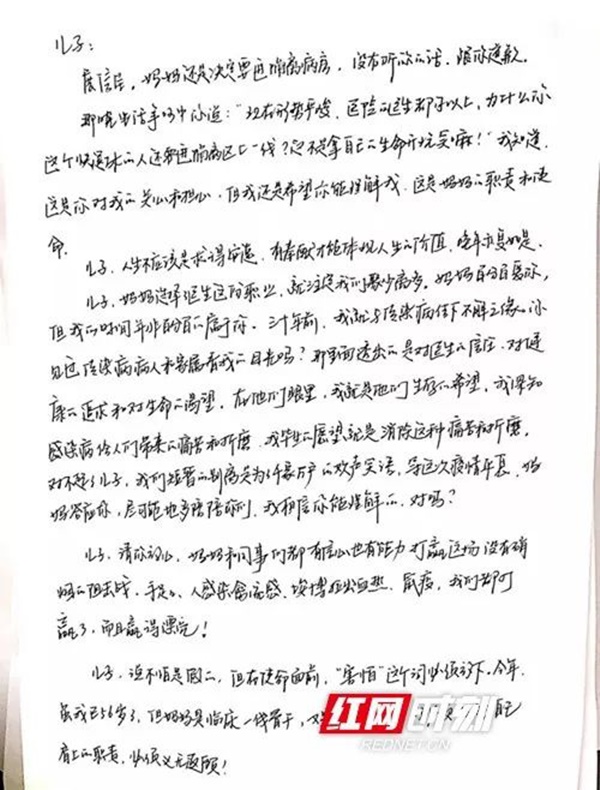 儿子:
展信佳,妈妈还是决定要进隔离病房,没有听你的话,跟你道歉
那晚电话争吵中你说:“现在形势严峻,医院的医生那么多,为什么你
这个快退休的人还要进隔离区上一线?您不能拿自己的生命开玩笑嘛!”我知道,
这是你对我的关心和担心,但我还是希望你能理解我,这是妈妈的职责和使
命.
儿子,人生不应该是求得安逸,有奉献才能体现人生的价值,晚年亦复如是.
儿子,妈妈选择医生这份职业,就注定我们聚少离多,妈妈百分百爱你,
但我的时间并非百分百的属于你.三十年前,我就与传染病结下不解之缘.你
见过传染病病人和家属看我的目光吗?那里面透出的是对医生的信任,对健
康的追求和对生命的渴望,在他们眼里,我就是他们生存的希望,我深知
感染病给人们带来的痛苦和折磨,我毕生的愿望就是消除这种痛苦和折磨,
对不起了儿子,我们短暂的别离是为了千家万户的欢声笑语,等这次疫情平复,妈
妈答应你,尽可能地多陪陪你们,我相信你能理解的,对吗?
儿子,请你放心,妈妈和同事们都有信心也有能力打赢这场没有硝
烟的阻击战,手足口、人感染禽流感、埃博拉出血热、鼠疫,我们都打
赢了,而且赢得漂亮!
儿子,说不怕是假的,但在使命面前,“害怕”这个词必须放下.今年
虽我已56岁了,但妈妈是临床一线骨干,对 自己
肩上的职责,必须义无返顾!
红网时刻
REDNET.CN